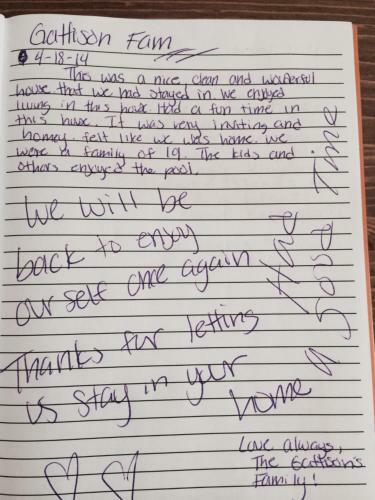 Gattison Fam
4-18-14
This was a nice clean and wonderful
house that we had stayed in we enjoyed
living in this house. Had a fun time in
this house. It was very inviting and
homey. felt like we was home. We
were a family of 19. The kids and
others enjoyed the pool.
We will be
back to enjoy
our self once again
Thanks for letting
us stay in your
home
Had a good Time
Love always,
The Gattison's
Family!